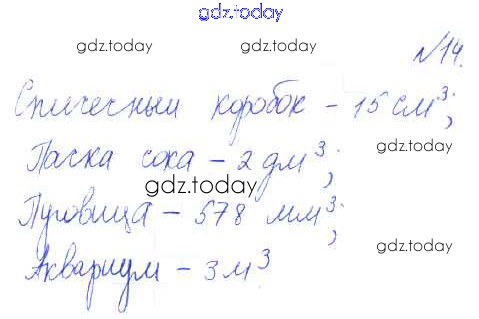 gdz.today
gdz.today gdz.today
№14.
Спичесныи коробок - 15 см³;
gdz.today
Пачка сока - 2 дм³;
gdz.today
Пуговица - 578 мм³;
gdz.today
Аквариум - 3 м³